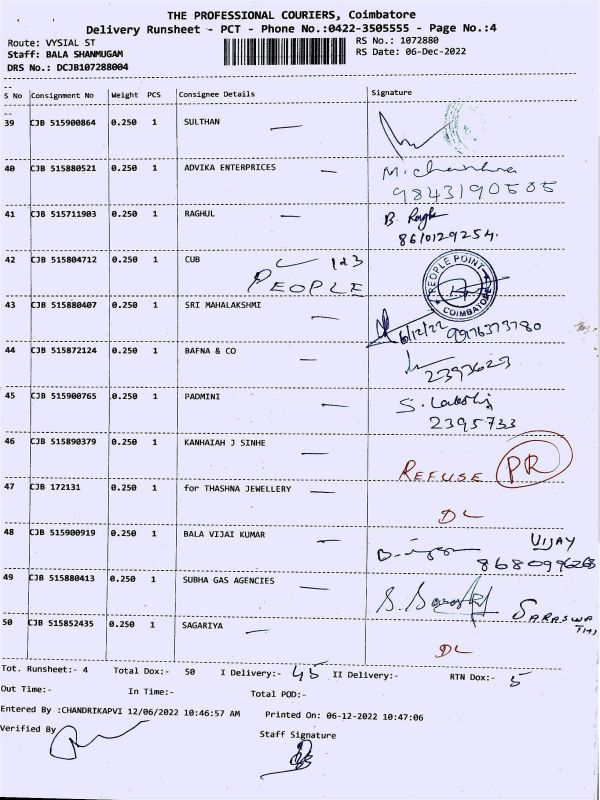 THE PROFESSIONAL COURIERS, Coimbatore
Delivery Runsheet - PCT - Phone No.:0422-3505555 - Page No.:4
Route: VYSIAL ST
RS No.: 1072880
Staff: BALA SHANMUGAM
RS Date: 06-Dec-2022
DRS No.: DCJB107288004
S No Consignment No Weight PCS Consignee Details Signature
39 CJB 515900864 0.250 1 SULTHAN
40 CJB 515880521 0.250 1 ADVIKA ENTERPRICES M.
9843190505
41 CJB 515711903 0.250 1 RAGHUL B.
8610129254.
42 CJB 515804712 0.250 1 CUB 1 2 3
PEOPLE
PEOPLE POINT
COIMBATORE
43 CJB 515880407 0.250 1 SRI MAHALAKSHMI
6/12/22
44 CJB 515872124 0.250 1 BAFNA & CO
2393623
45 CJB 515900765 0.250 1 PADMINI S.
2395733
46 CJB 515890379 0.250 1 KANHAIAH J SINHE
REFUSE PR
47 CJB 172131 0.250 1 for THASHNA JEWELLERY
DL
48 CJB 515900919 0.250 1 BALA VIJAI KUMAR VIJAY
8680996268
49 CJB 515880413 0.250 1 SUBHA GAS AGENCIES
SARASWA
THI
50 CJB 515852435 0.250 1 SAGARIYA
DL
Tot. Runsheet:- 4 Total Dox:- 50 I Delivery:- 45 II Delivery:- RTN Dox:- 5
Out Time:- In Time:- Total POD:-
Entered By :CHANDRIKAPVI 12/06/2022 10:46:57 AM Printed On: 06-12-2022 10:47:06
Verified By
Staff Signature